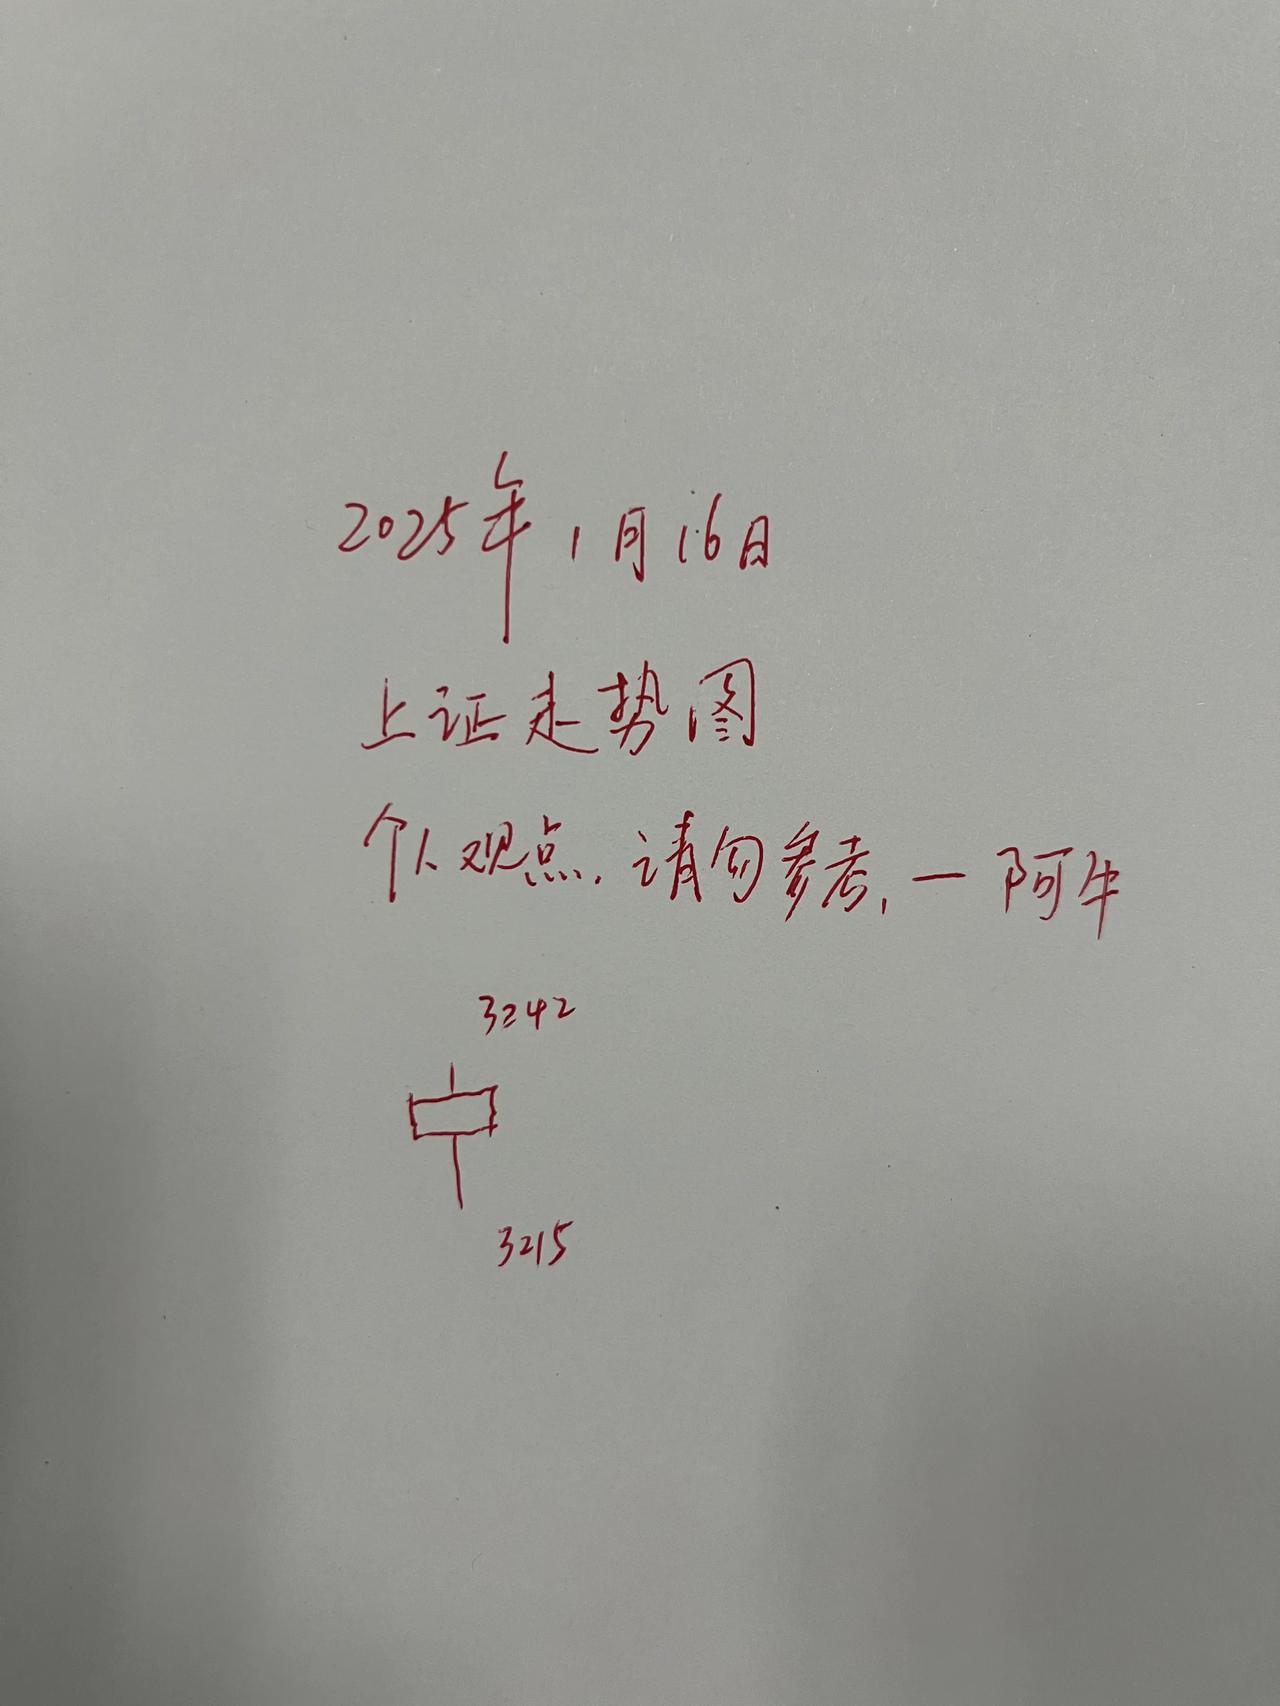 2025年1月16日
上证走势图
个人观点.请勿参考,一阿牛
3242
3215